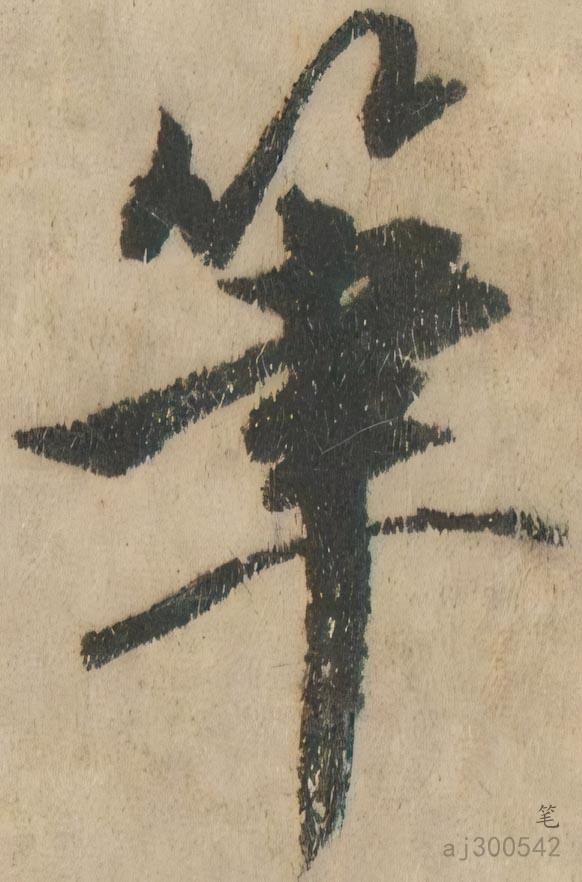 筆
笔
aj300542